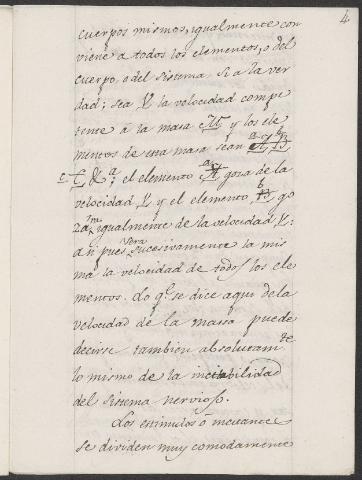 4
cuerpos mismos, igualmente con
viene a todos los elementos, o del
cuerpo, o del sistema. Si a la ver
dad; sea V la velocidad compe
tente à la masa M y los ele
mentos de esta masa sean a b
c &a; el elemento a goza de la
velocidad V y el elemento b go
za igualmente de la velocidad V:
assi pues sera sucesivamente la mis
ma la velocidad de todos los ele
mentos. Lo q.e se dice aqui de la
velocidad de la massa puede
decirse tambien absolutam.te
lo mismo de la incitabilidad
del sistema nervioso.
Los estimulos ò incitantes
se dividen muy comodamente